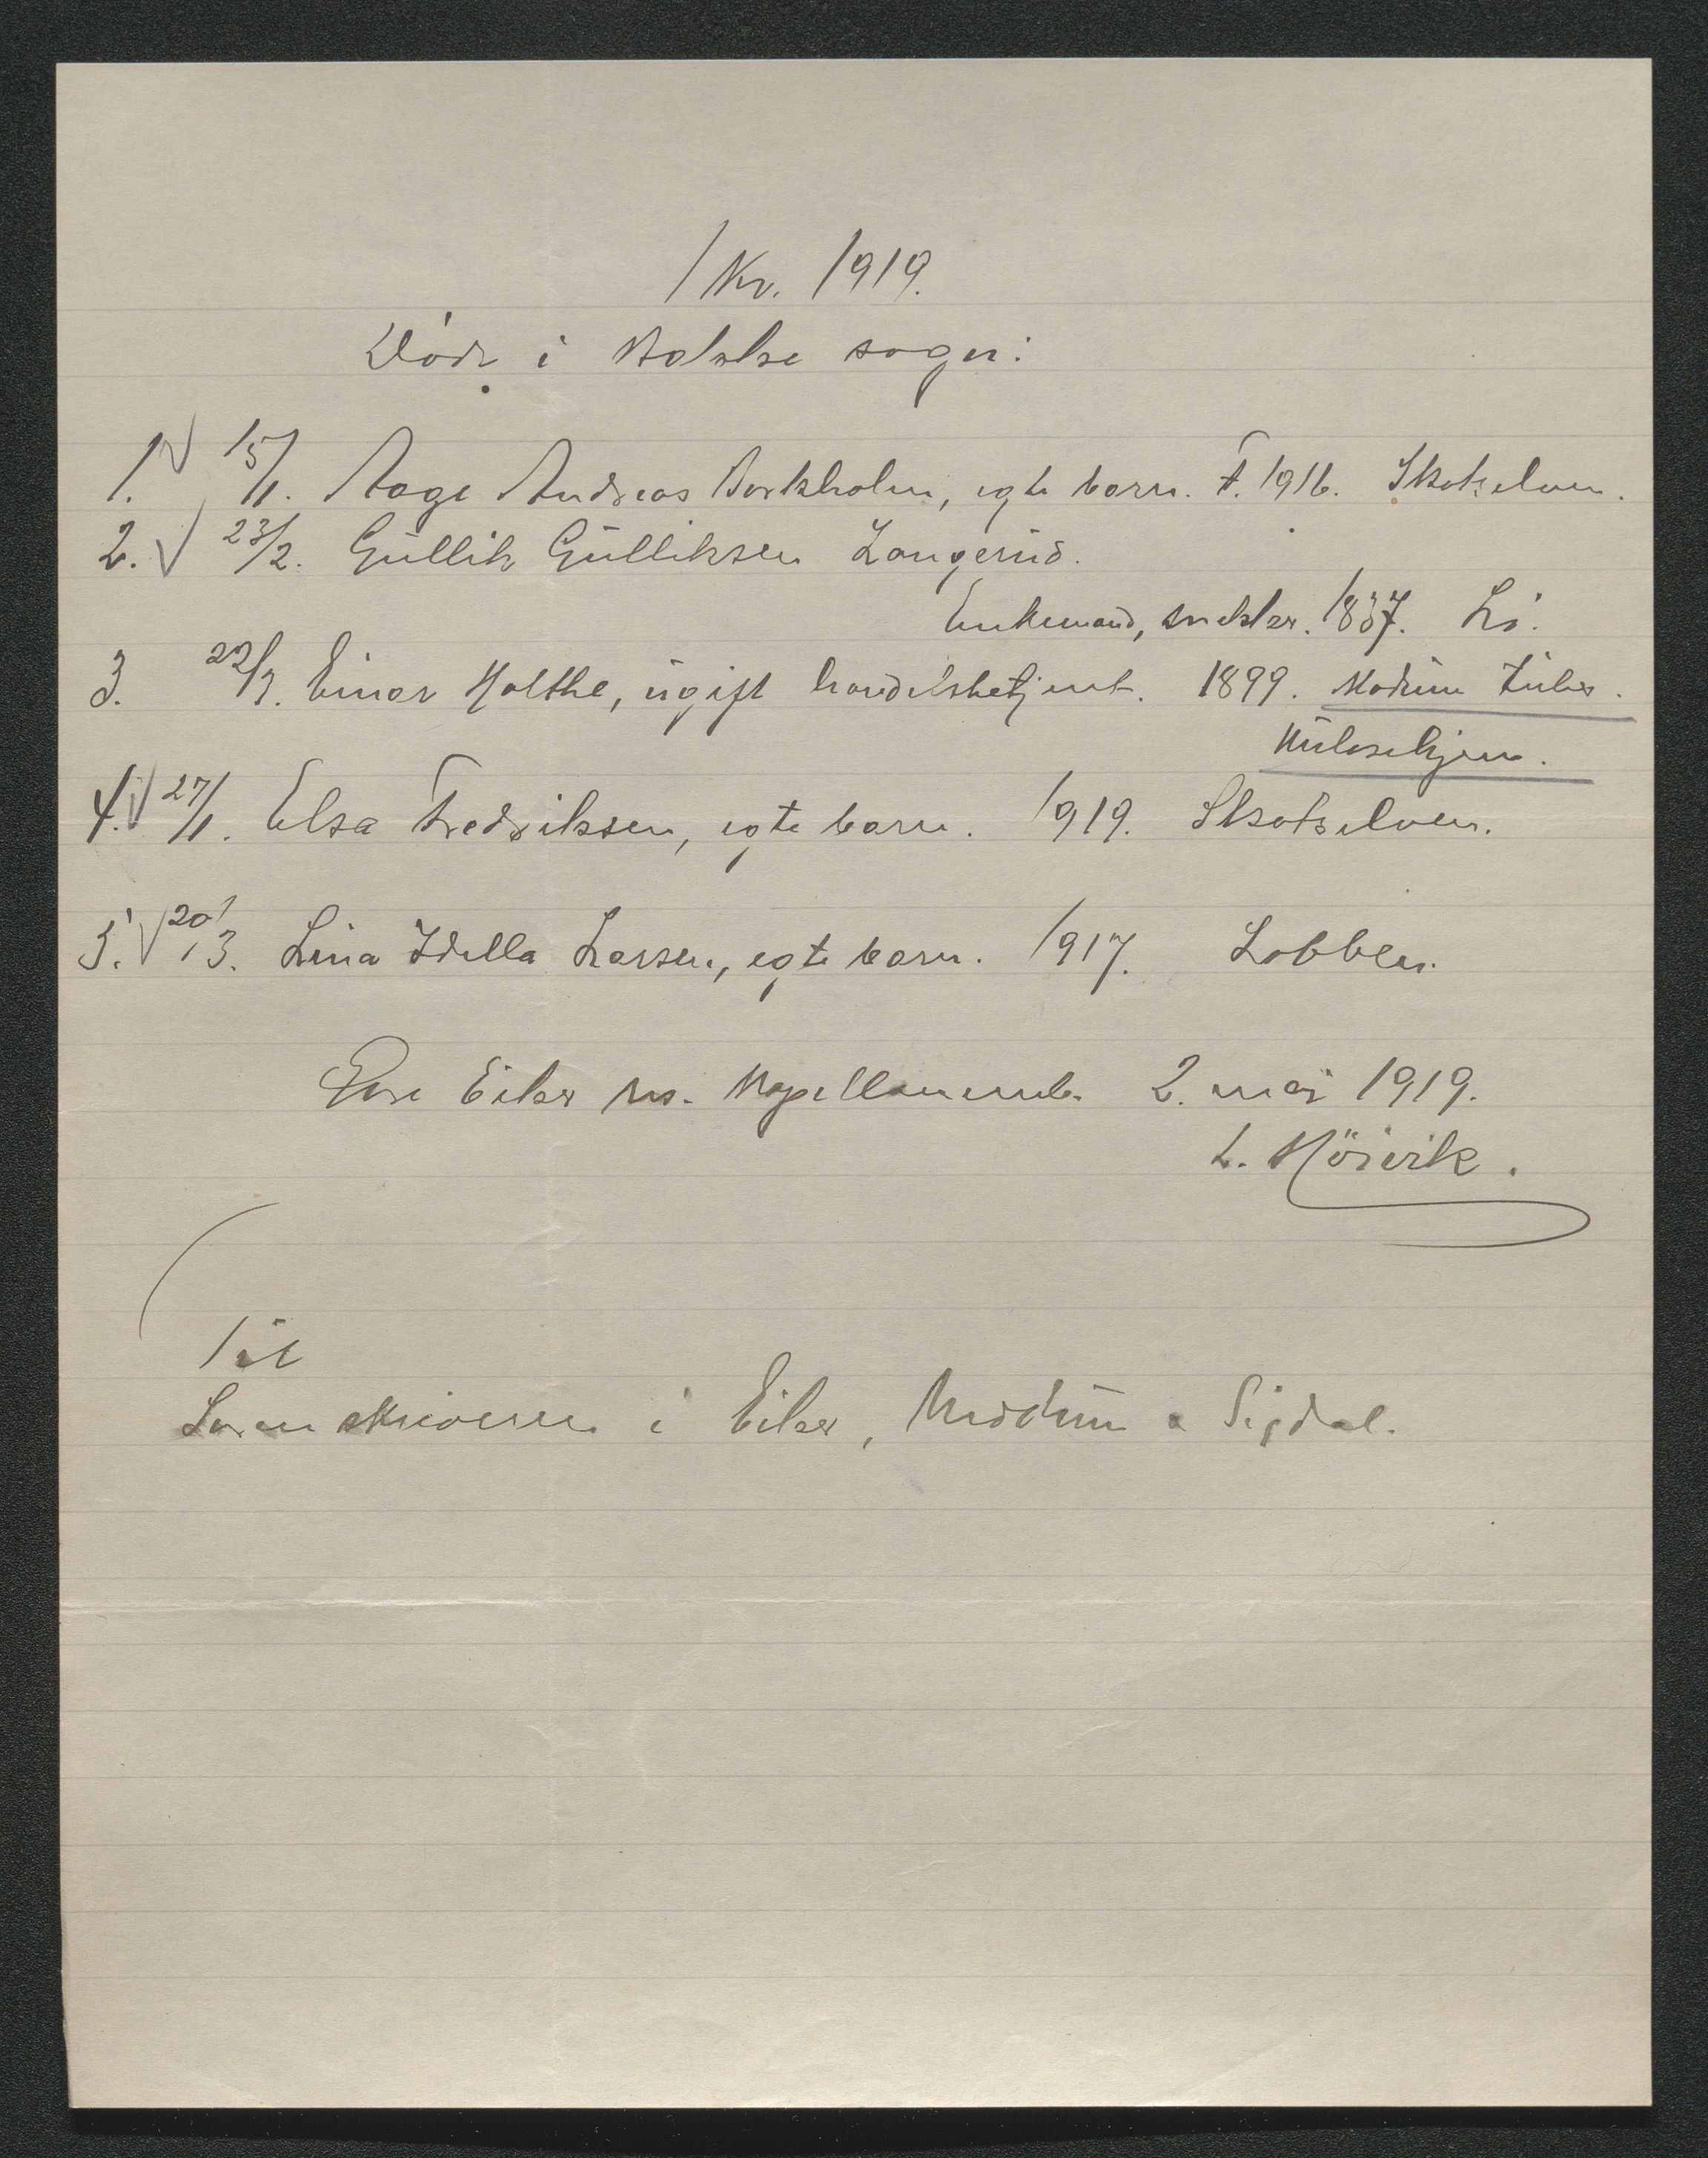 1 Kv. 1919.
Döde i Bakke sogn:
1. 15/1. Aage Andreas Borkholm, egte barn. F. 1916. Skotselven.
2. 23/2. Gullik Gulliksen Langerud.
Enkemand, snekker. 1837. Lö.
3. 22/3. Einar Holthe, ugift handelsbetjent. 1899. Modum Tuber.
4. 27/1. Elsa Fredriksen, egte barn. 1919. Skotselven.
5. 20/3. Lina Idella Larsen, egte barn. 1917. Lobben.
Övre Eiker res. Kapellanemb. 2. mai 1919.
L. Höivik.
Til
Sorenskriveren i Eiker, Modum & Sigdal.